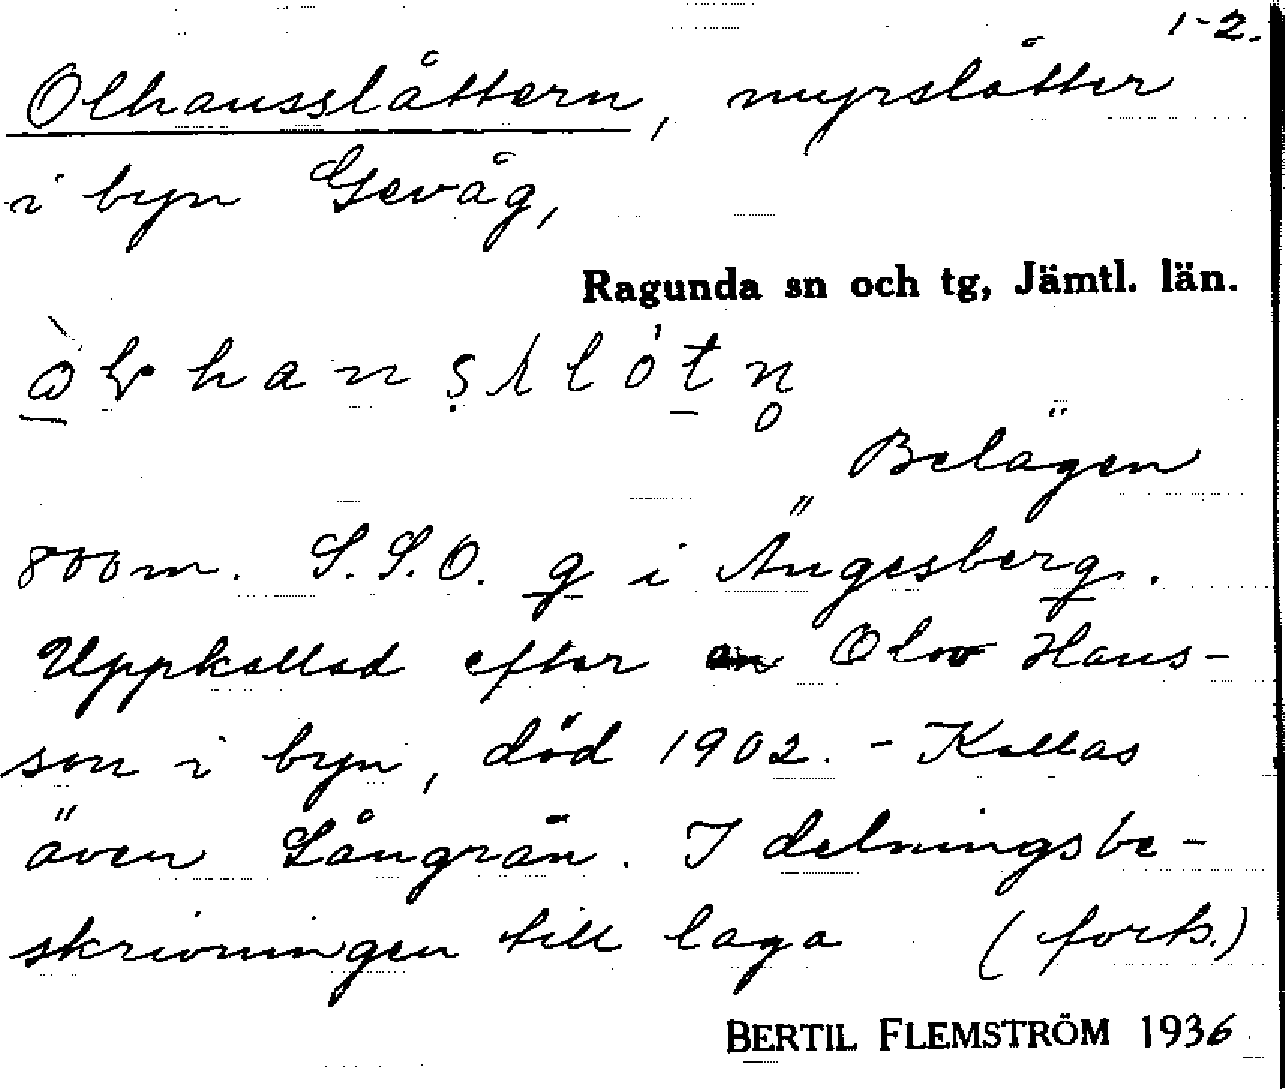 1-2.
Olhansslåttern, myrslåtter
i byn Gevåg,
Ragunda sn och tg, Jämtl. län.
Belägen
800m. S.S.O. g i Ängesberg.
Uppkallad efter Olov Hans-
son i byn, död 1902. - Kallas
även Långrån. I delningsbe-
skrivningen till laga (forts.)
BERTIL FLEMSTRÖM 1936